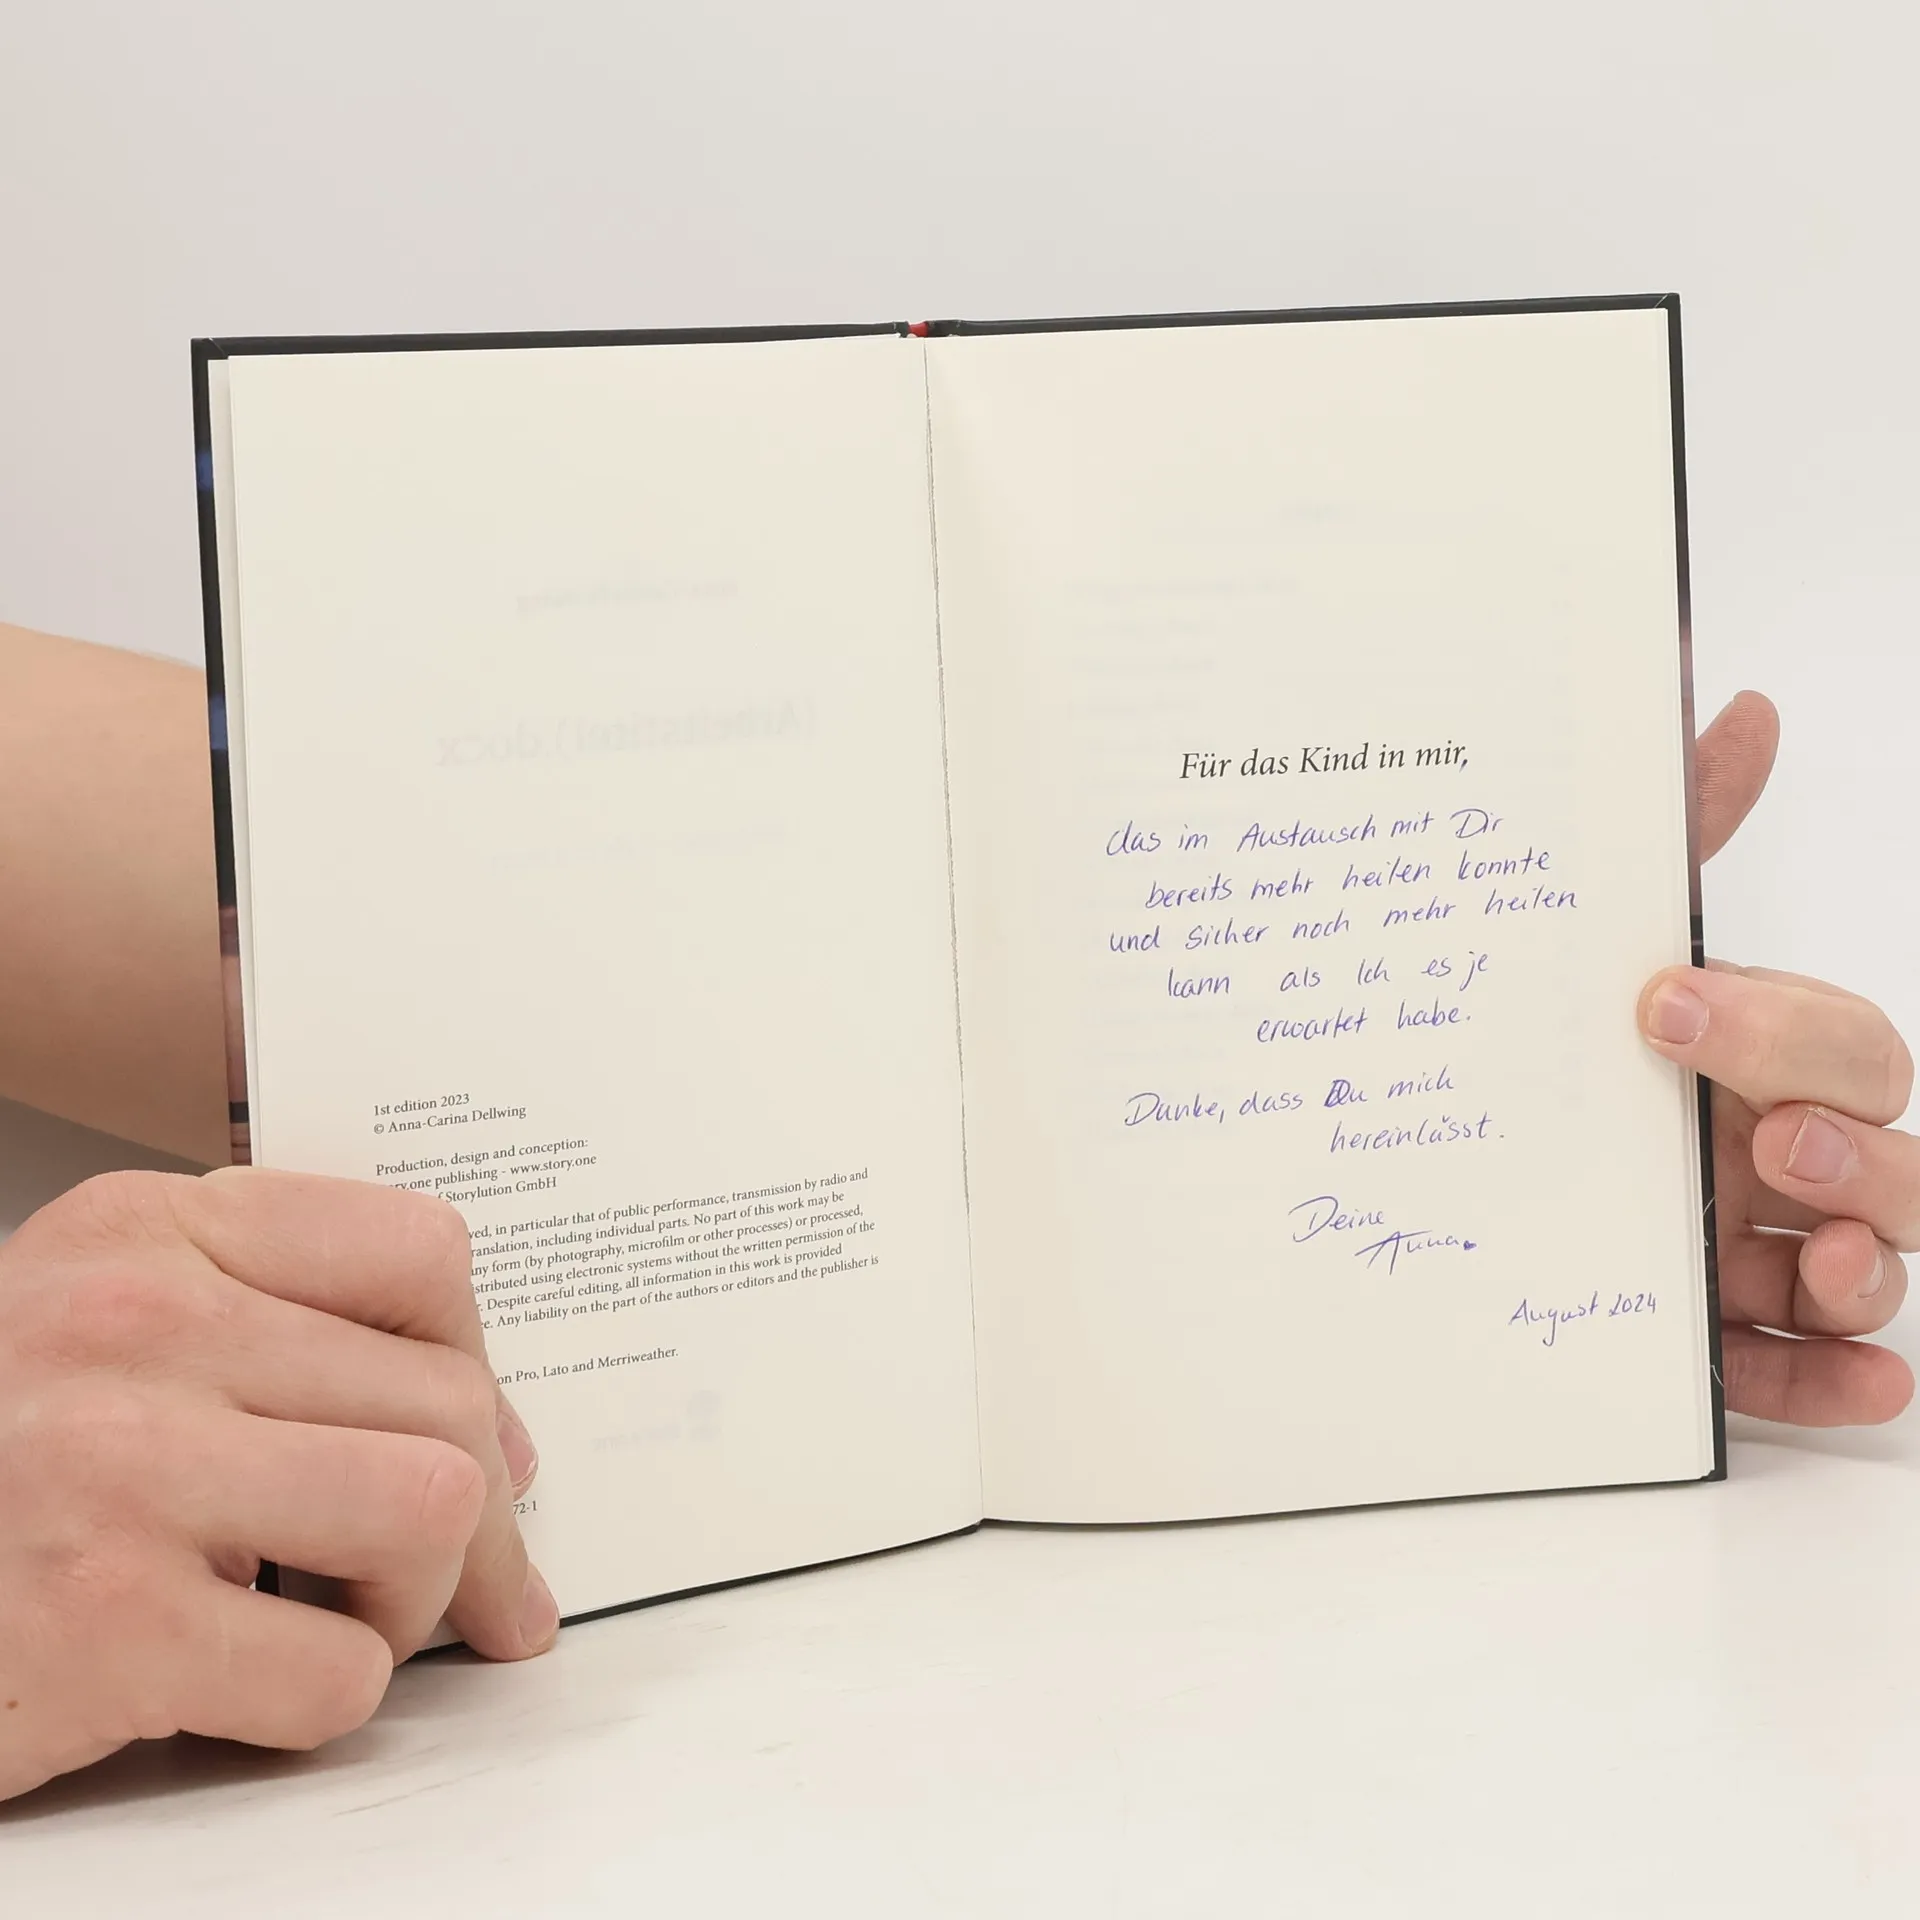 1st edition 2023
© Anna-Carina Dellwing
Production, design and conception:
publishing - www.story.one
Storylution GmbH
in particular that of public performance, transmission by radio and
including individual parts. No part of this work may be
form (by photography, microfilm or other processes) or processed,
using electronic systems without the written permission of the
Despite careful editing, all information in this work is provided
Any liability on the part of the authors or editors and the publisher is
Pro, Lato and Merriweather.
72-1
(Arbeitstitel).docx
Für das Kind in mir,
das im Austausch mit Dir
bereits mehr heilen konnte
und sicher noch mehr heilen
kann als Ich es je
erwartet habe.
Danke, dass Du mich
hereinlässt.
Deine
Anna
August 2024